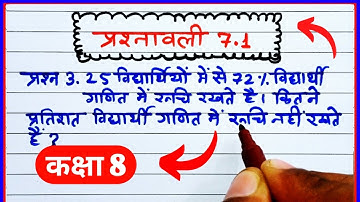 प्रश्नावली 7.1
प्रश्न 3. 25 विद्यार्थियों में से 72% विद्यार्थी
गणित में रूचि रखते है। कितने
प्रतिशत विद्यार्थी गणित में रूचि नहीं रखते
हैं ?
कक्षा 8